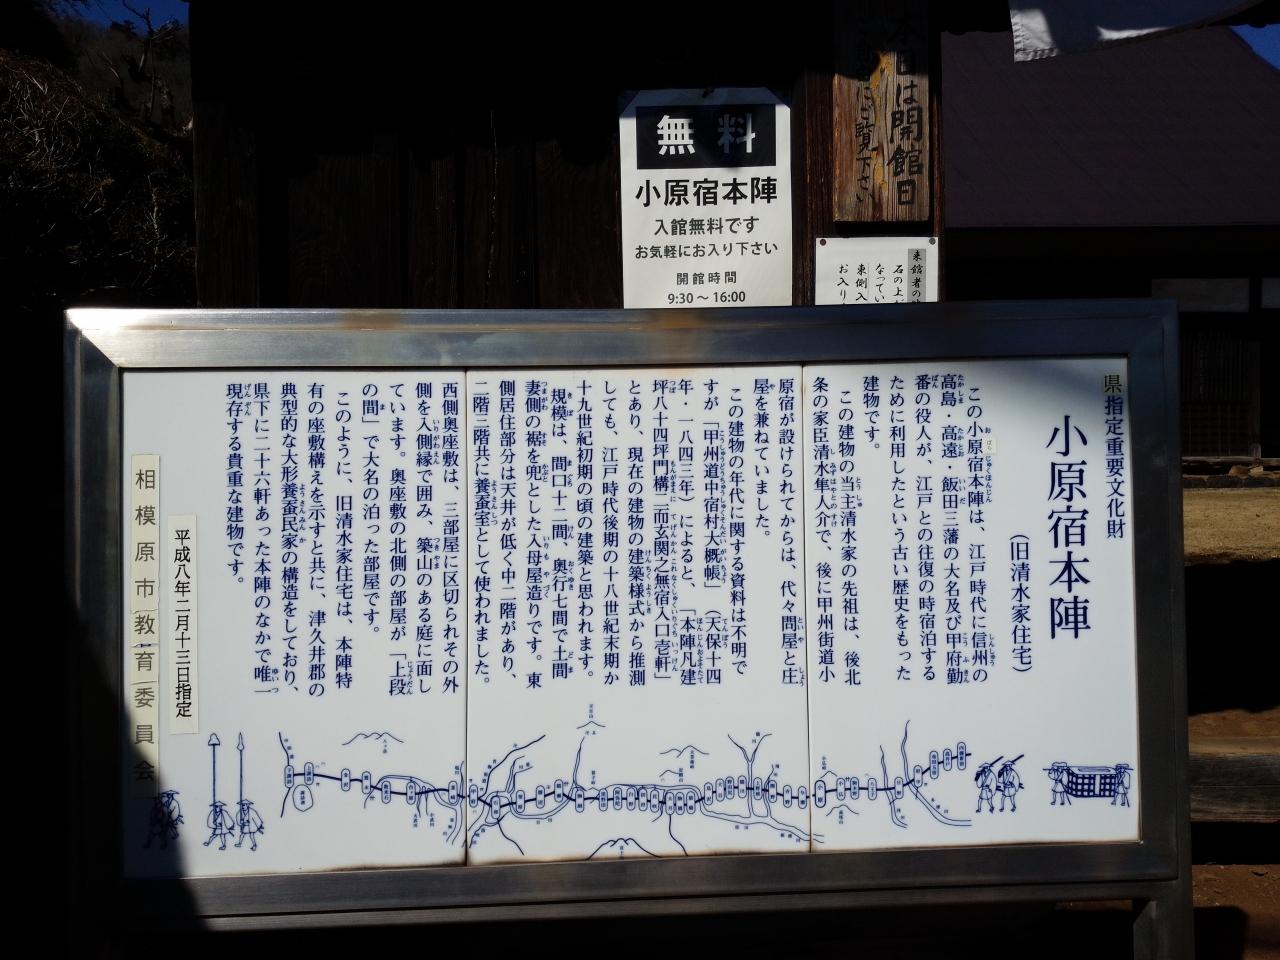 無料
小原宿本陣
入館無料です
お気軽にお入り下さい
開館時間
9:30～16:00
本日は開館日
ご覧下さい
来館者の
石の上が
なってい
東側入
お入り
県指定重要文化財
小原宿本陣
（旧清水家住宅）
この小原宿本陣は、江戸時代に信州の
高島・高遠・飯田三藩の大名及び甲府勤
番の役人が、江戸との往復の時宿泊する
ために利用したという古い歴史をもった
建物です。
この建物の当主清水家の先祖は、後北
条の家臣清水隼人介で、後に甲州街道小
原宿が設けられてからは、代々問屋と庄
屋を兼ねていました。
この建物の年代に関する資料は不明で
すが「甲州道中宿村大概帳」（天保十四
年・一八四三年）によると、「本陣凡建
坪八十四坪門構ニ而玄関之無宿入口壱軒」
とあり、現在の建物の建築様式から推測
しても、江戸時代後期の十八世紀末期か
十九世紀初期の頃の建築と思われます。
規模は、間口十二間、奥行七間で土間
妻側の裾を兜とした入母屋造りです。東
側居住部分は天井が低く中二階があり、
二階三階共に養蚕室として使われました。
西側奥座敷は、三部屋に区切られその外
側を入側縁で囲み、築山のある庭に面し
ています。奥座敷の北側の部屋が「上段
の間」で大名の泊った部屋です。
このように、旧清水家住宅は、本陣特
有の座敷構えを示すと共に、津久井郡の
典型的な大形養蚕民家の構造をしており、
県下に二十六軒あった本陣のなかで唯一
現存する貴重な建物です。
平成八年二月十三日指定
相模原市教育委員会